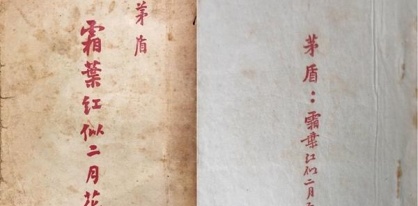 茅盾
霜葉红似二月花
茅盾：霜葉红似二月